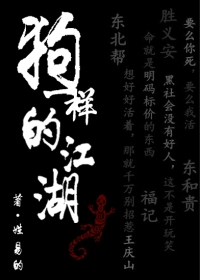 要么你死，要么我活
胜义安
东和贵
黑社会没有好人，这不是开玩笑
命就是明码标价的东西
福记
东北帮
想好好活着，那就千万别招惹王庆山
狗一样的江湖
著·姓易的